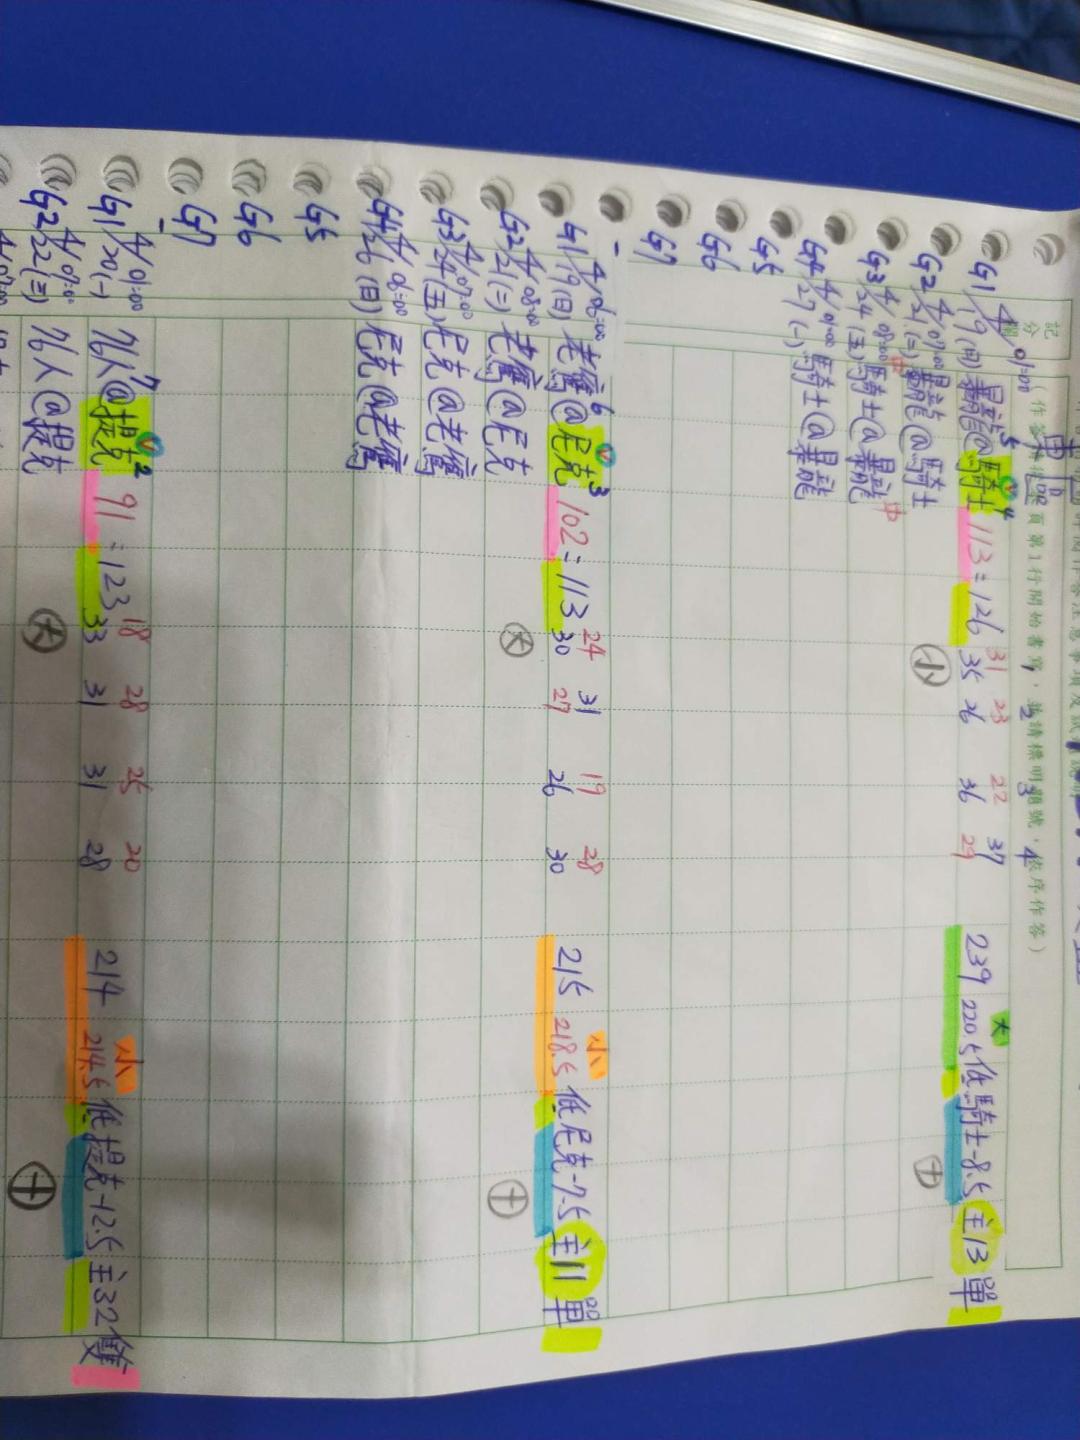 記分欄
(作答請從本頁第1行開始書寫,並請標明題號,依序作答)
1 2 3 4
G1 4/19(日) 01:00 暴龍@騎士 5 4 113:126 31 23 22 37 239 大 220.5 低騎士-8.5 主13單
35 26 36 29
G2 4/21(二) 07:00 暴龍@騎士 小 +
G3 4/24(五) 08:00 騎士@暴龍
G4 4/27(一) 01:00 騎士@暴龍
G5
G6
G7
G1 4/19(日) 06:00 老鷹@尼克 6 3 102:113 24 31 19 28 215 小 218.5 低尼克-7.5 主11單
30 27 26 30
G2 4/21(二) 08:00 老鷹@尼克 大 +
G3 4/24(五) 07:00 尼克@老鷹
G4 4/26(日) 06:00 尼克@老鷹
G5
G6
G7
G1 4/20(一) 01:00 76人@提克 7 2 91:123 18 28 25 20 214 小 214.5 低提克-12.5 主32雙
33 31 31 28
G2 4/22(三) 07:00 76人@提克 大 +